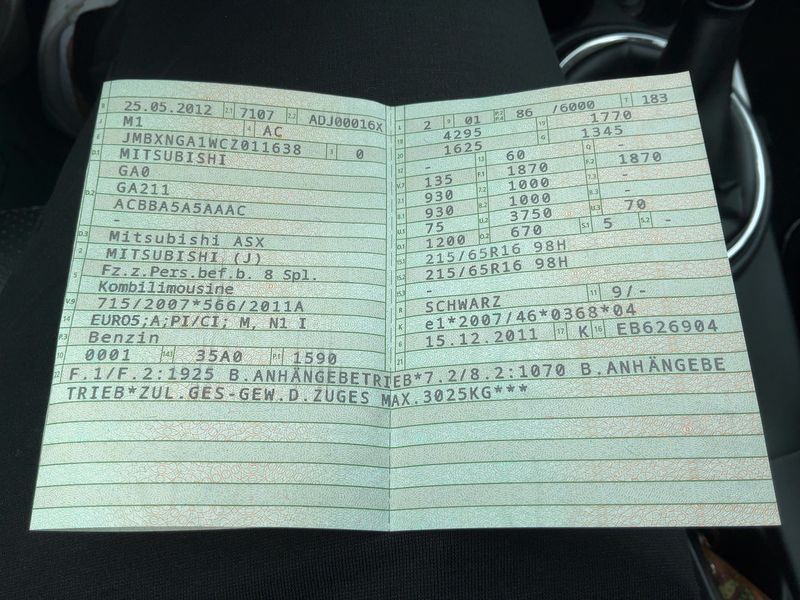 B 25.05.2012 2.1 7107 2.2 ADJ00016X
J M1 4 AC
E JMBXNGA1WCZ011638 3 0
D.1 MITSUBISHI
GA0
D.2 GA211
ACBBA5A5AAAC
-
D.3 Mitsubishi ASX
2 MITSUBISHI (J)
5 Fz.z.Pers.bef.b. 8 Spl.
Kombilimousine
V.9 715/2007*566/2011A
14 EURO5;A;PI/CI; M, N1 I
P.3 Benzin
10 0001 14.1 35A0 P.1 1590
L 2 9 01 P.2 P.4 86 /6000 T 183
18 4295 19 1770
20 1625 G 1345
12 - 13 60 Q -
V.7 135 F.1 1870 F.2 1870
7.1 930 7.2 1000 7.3 -
8.1 930 8.2 1000 8.3 -
U.1 75 U.2 3750 U.3 70
O.1 1200 O.2 670 S.1 5 S.2 -
15.1 215/65R16 98H
15.2 215/65R16 98H
15.3 -
R SCHWARZ 11 9/-
K e1*2007/46*0368*04
6 15.12.2011 17 K 16 EB626904
21
22 F.1/F.2:1925 B.ANHÄNGEBETRIEB*7.2/8.2:1070 B.ANHÄNGEBE
TRIEB*ZUL.GES-GEW.D.ZUGES MAX.3025KG***